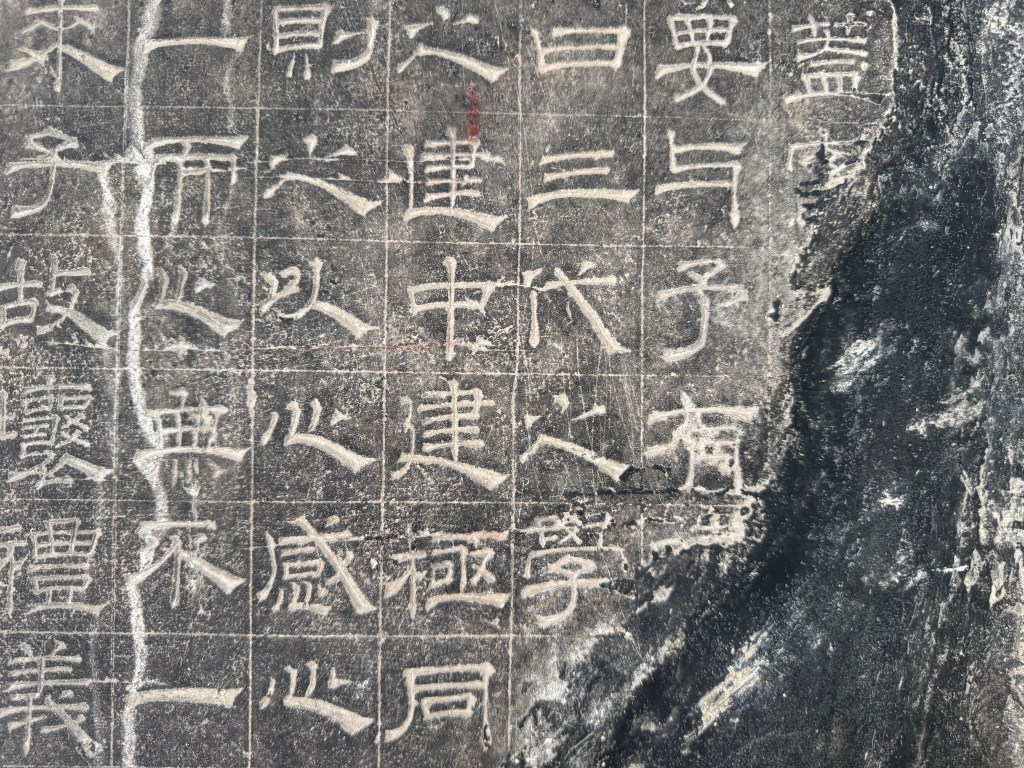 蓋
要与予有
曰三代之學
之建中建極同
則之以心感心
一而心無不一
子故壞禮義